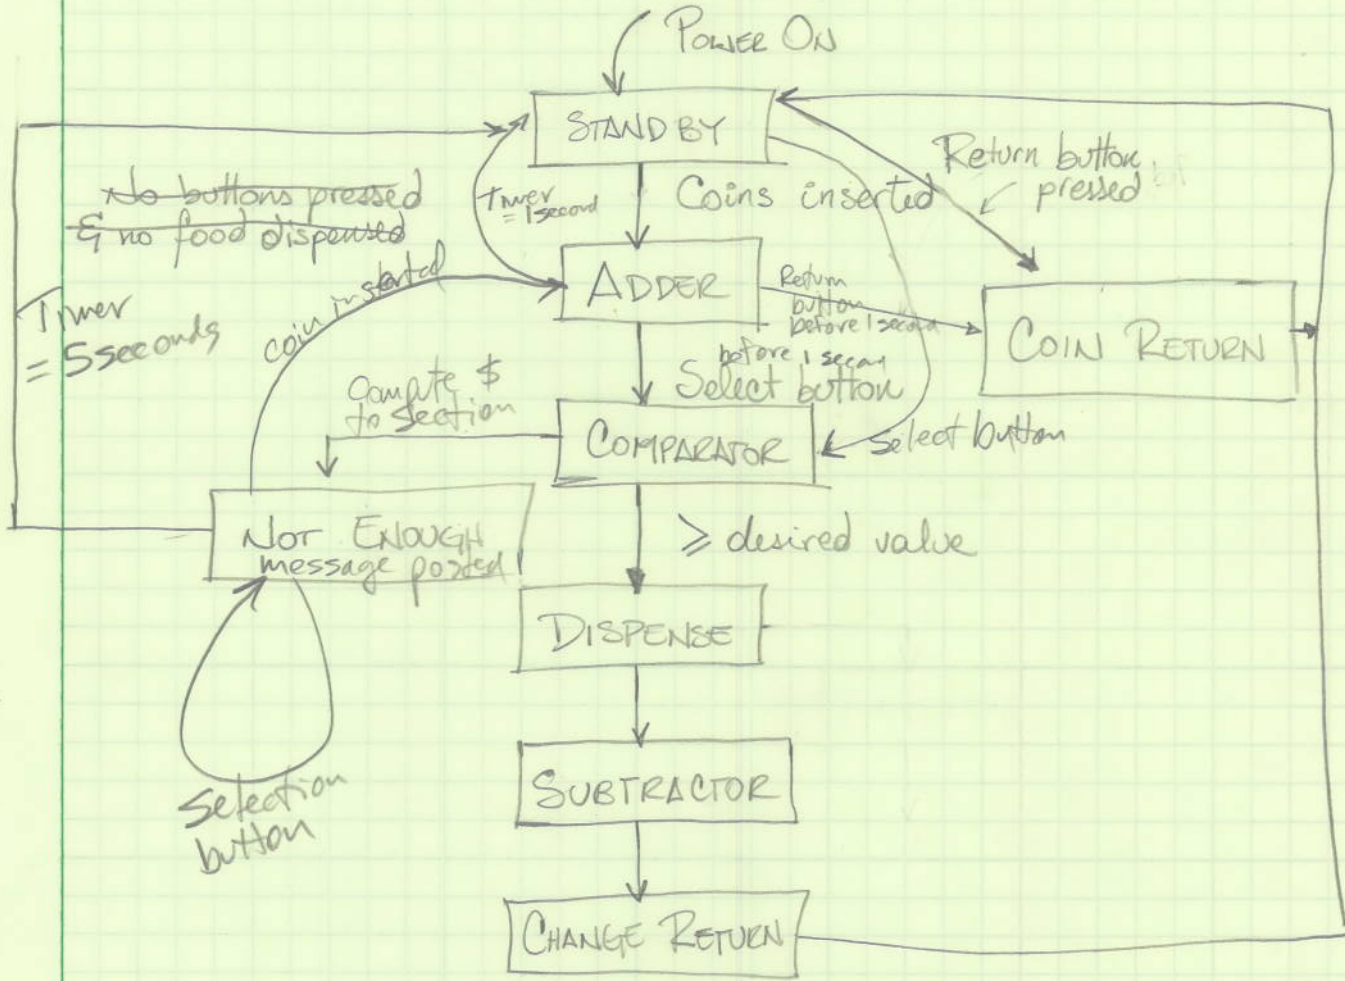 POWER ON
STANDBY
Return button
pressed
No buttons pressed
& no food dispensed
Timer
= 1 second
Coins inserted
Timer
= 5 seconds
coin inserted
ADDER
Return
button
before 1 second
COIN RETURN
before 1 secon
Select button
Compute $
to section
COMPARATOR
Select button
NOT ENOUGH
message posted
≥ desired value
DISPENSE
Selection
button
SUBTRACTOR
CHANGE RETURN